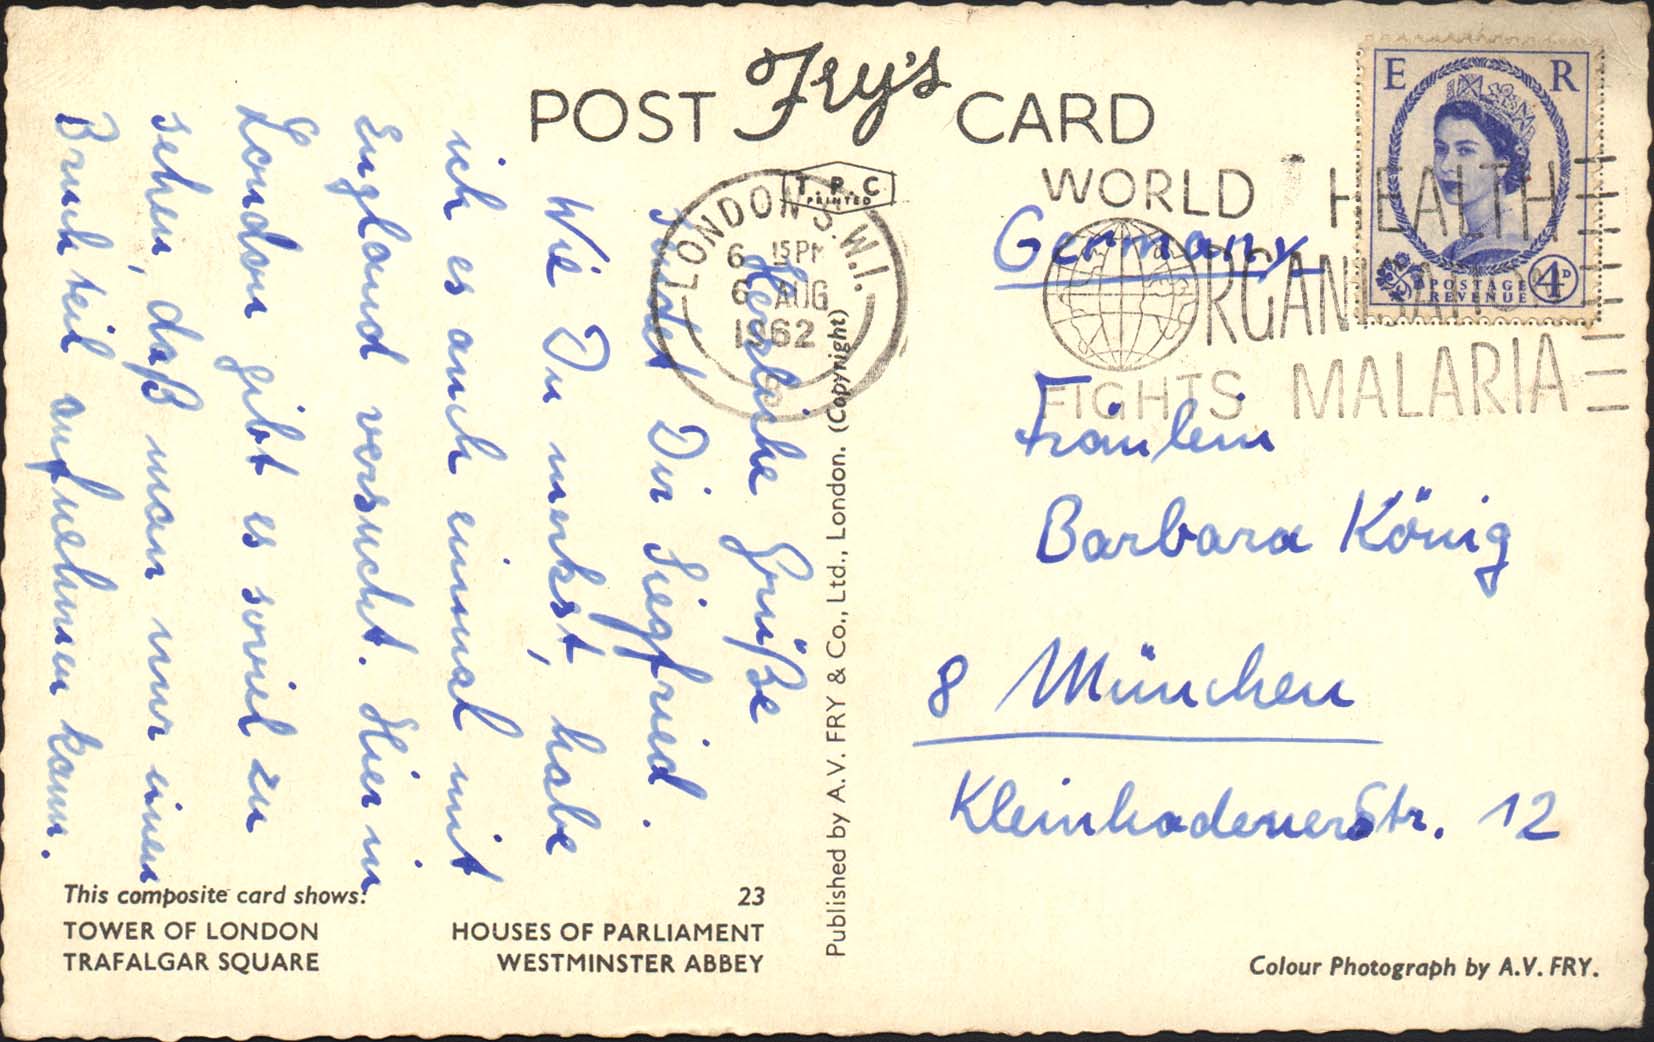 POST Fry's CARD
T.P.C
PRINTED
LONDON S.W.1.
6 15PM
6 AUG
1962
WORLD HEALTH
ORGANIZATION
FIGHTS MALARIA
E R
POSTAGE
REVENUE
4D
Herzliche Grüße
sendet Dir Siegfried.
Wie Du merkst, habe
ich es auch einmal mit
England versucht. Hier in
London gibt es soviel zu
sehen, daß man nur einen
Bruchteil aufnehmen kann.
Published by A.V. FRY & Co., Ltd., London. (Copyright)
Germany
Fräulein
Barbara König
8 München
KleinhadenerStr. 12
This composite card shows:
23
TOWER OF LONDON
HOUSES OF PARLIAMENT
TRAFALGAR SQUARE
WESTMINSTER ABBEY
Colour Photograph by A.V. FRY.